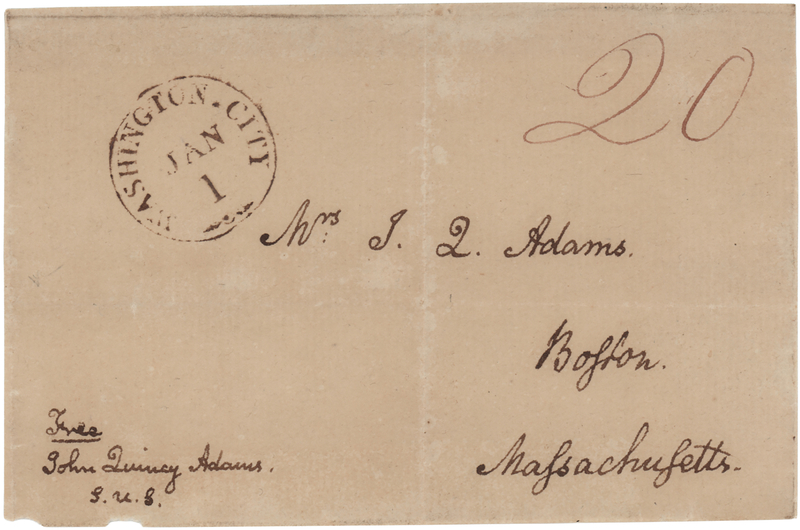 WASHINGTON. CITY
JAN
1
20
Mrs. J. Q. Adams.
Boſton.
Maſsachuſetts.
Free
John Quincy Adams.
S.U.S.